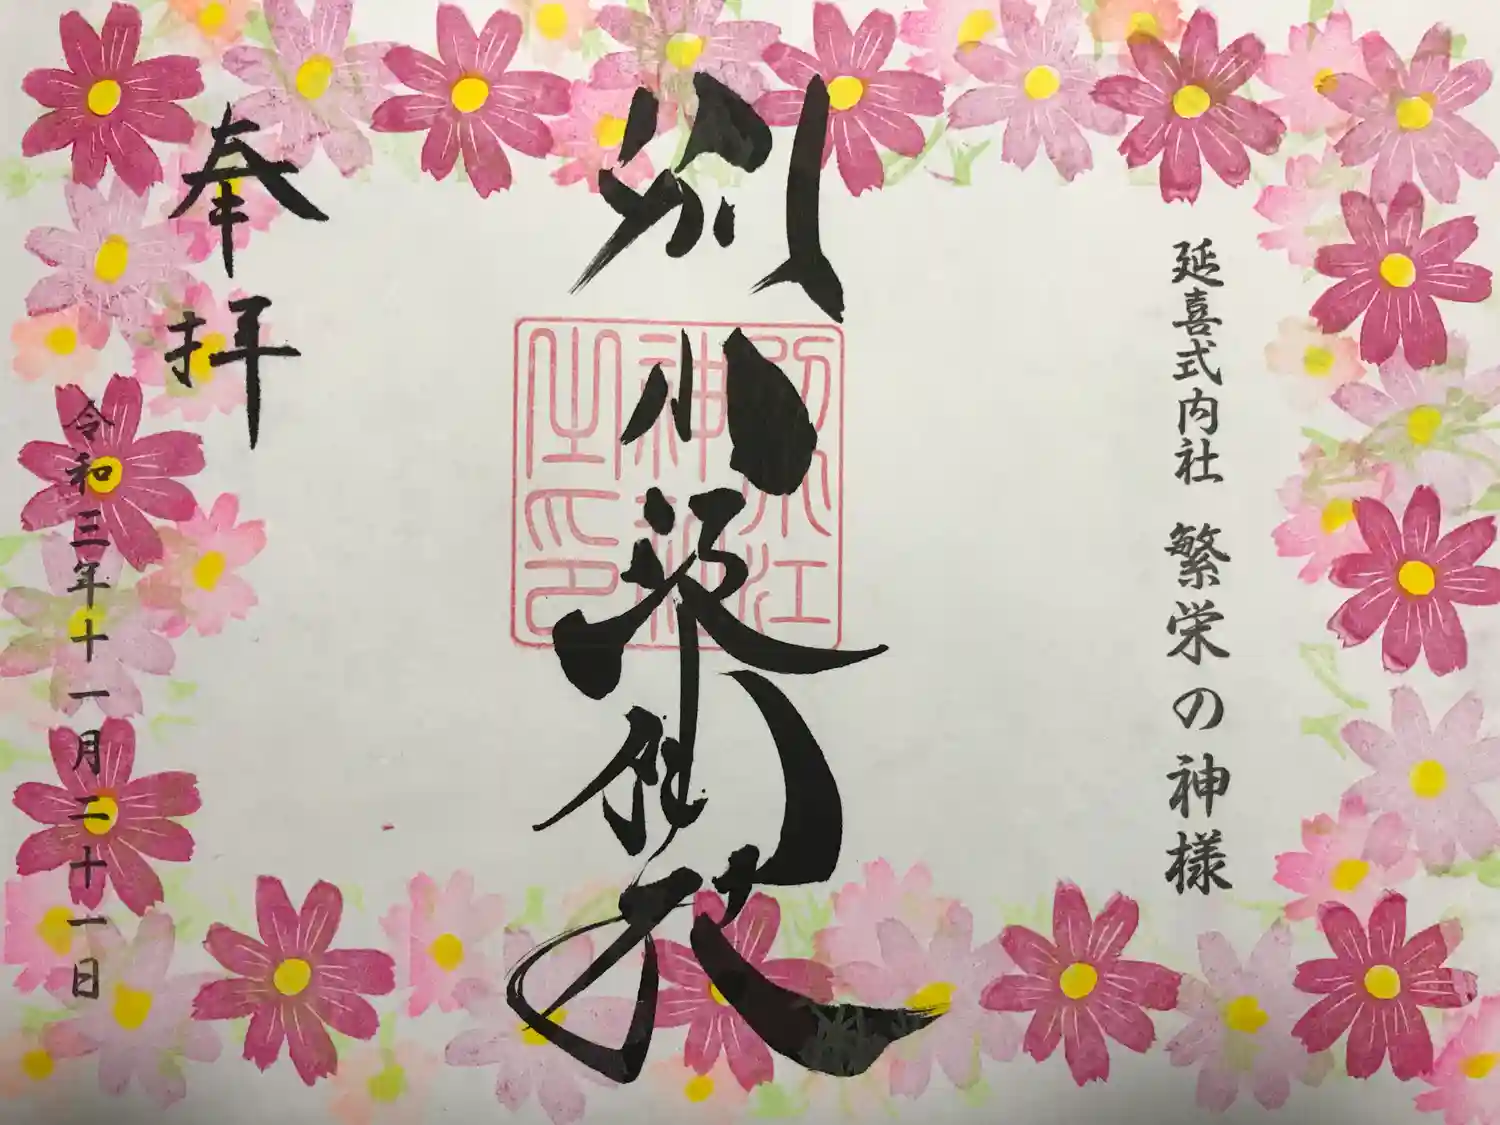 延喜式内社 繁栄の神様
別小
別小江
神社
之印
奉拝
令和三年十一月二十一日